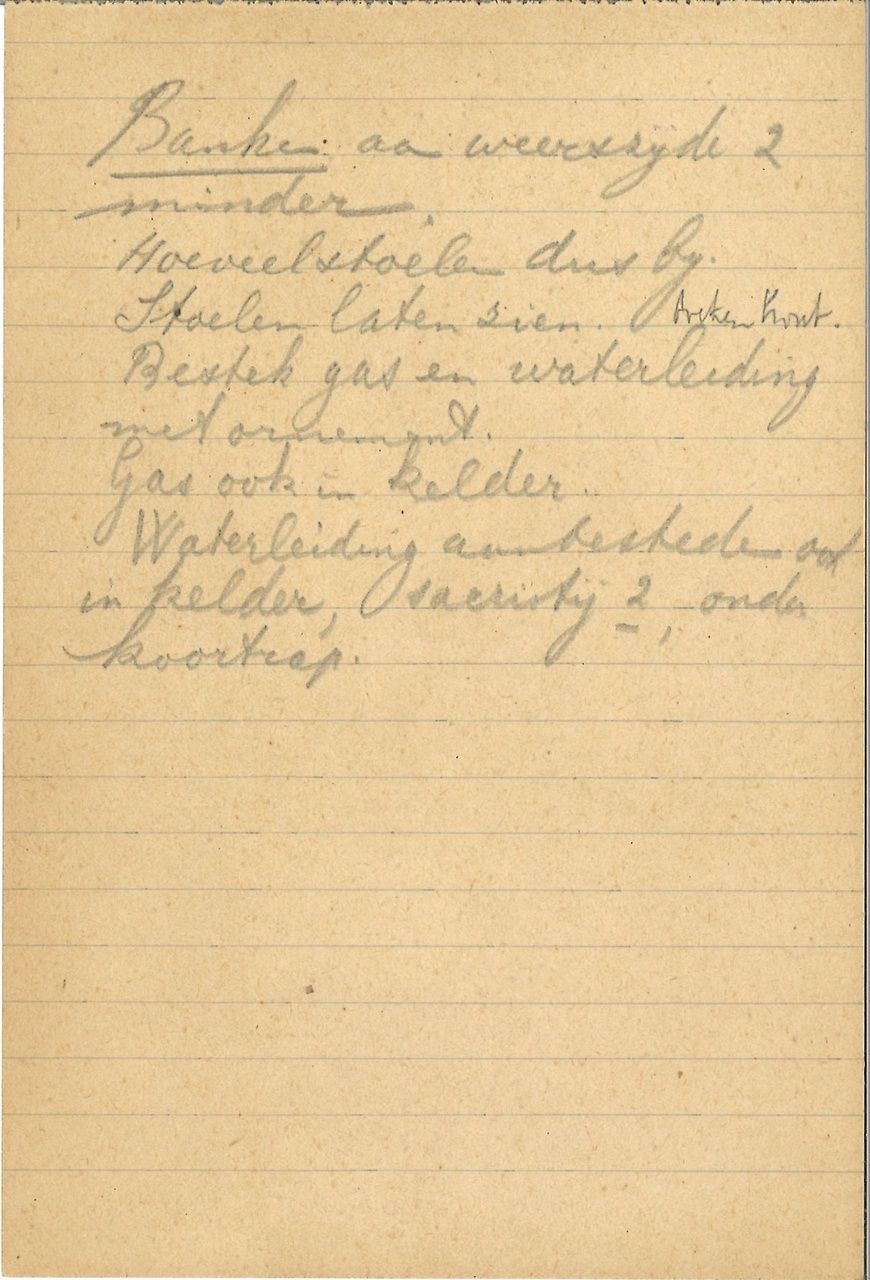 Banken aan weerszijde 2
minder.
Hoeveel stoelen dus by.
Stoelen laten zien.
Bestek gas en waterleiding
met ornement.
Gas ook in kelder.
Waterleiding aanbesteden ook
in kelder, sacristij 2, onder
koortrap.